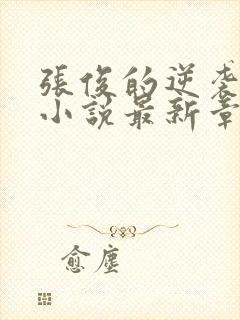 張俊的逆袭
小說最新章
愈塵